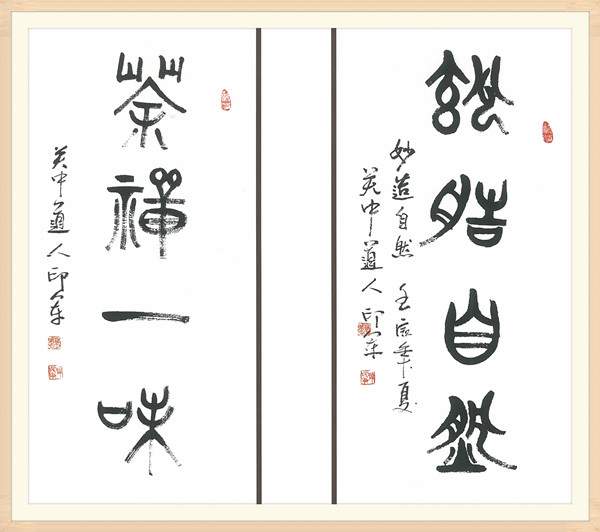 玅艁自然
妙造自然 壬辰年夏
关中道人印
茶禪一味
关中道人印